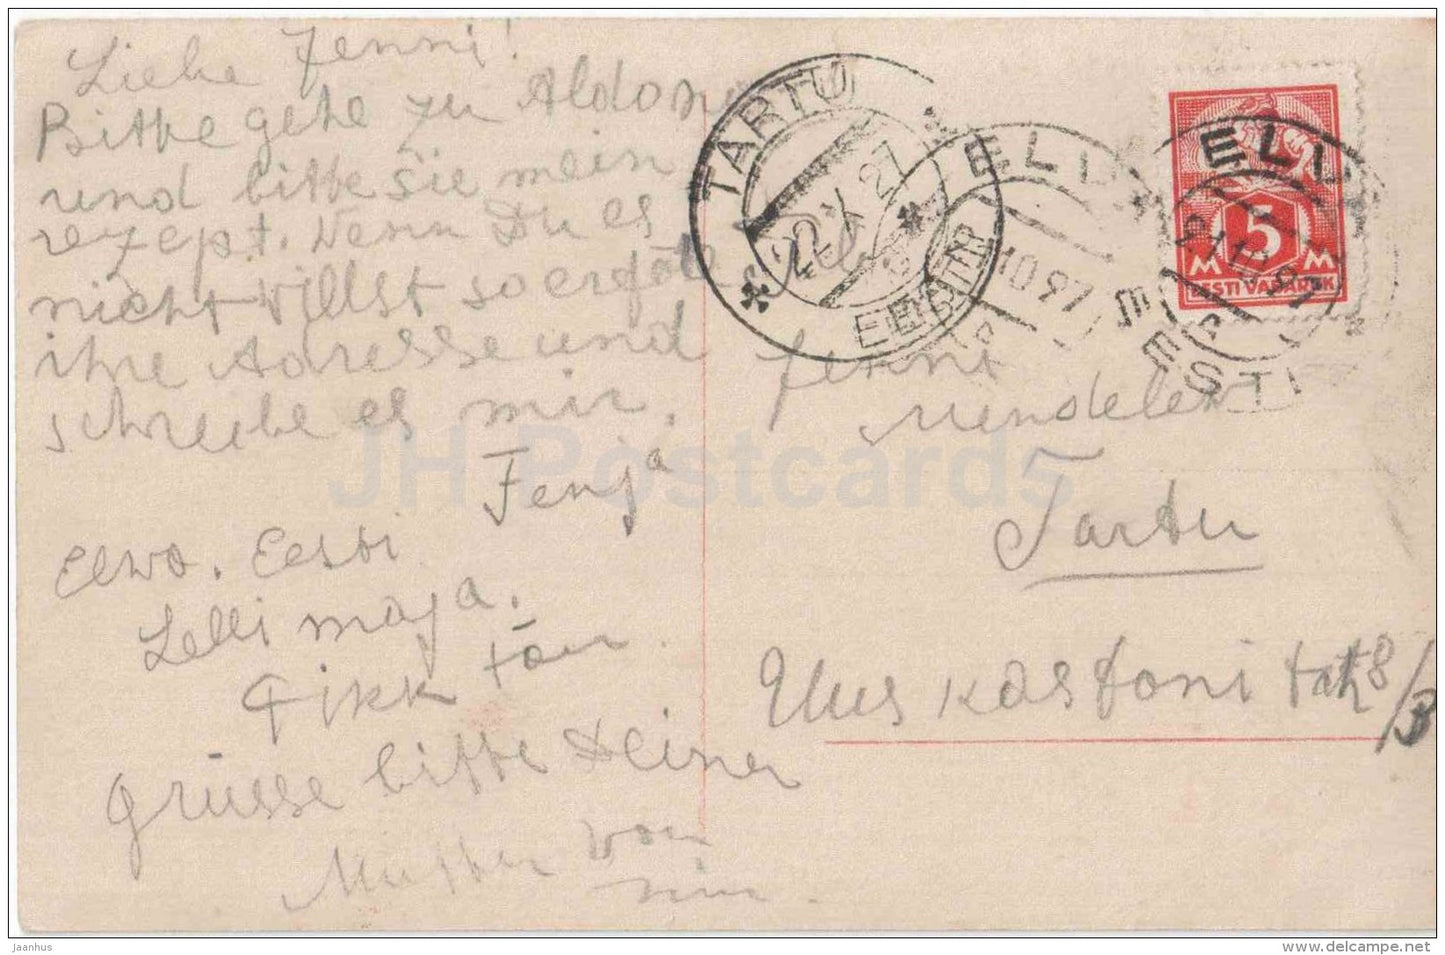 Liebe Jenni!
Bitte gehe zu Aldona
und bitte sie mein
rezept. Wenn Du es
nicht Willst so
ihre Adresse und
schreibe es mir.
Fenja
Elwa. Eesti
Lelli maja.
Pikk tän.
Grüsse bitte Deiner
Mutter von
mir.
Jenni
Mendelew
Tartu
Uus kastani tän 8/3
TARTU
22 X 27
EESTI
ELVA
10 27
ELVA
EESTI
5
M M
EESTI VABARIIK
JH Postcards
jaanhus
www.delcampe.net